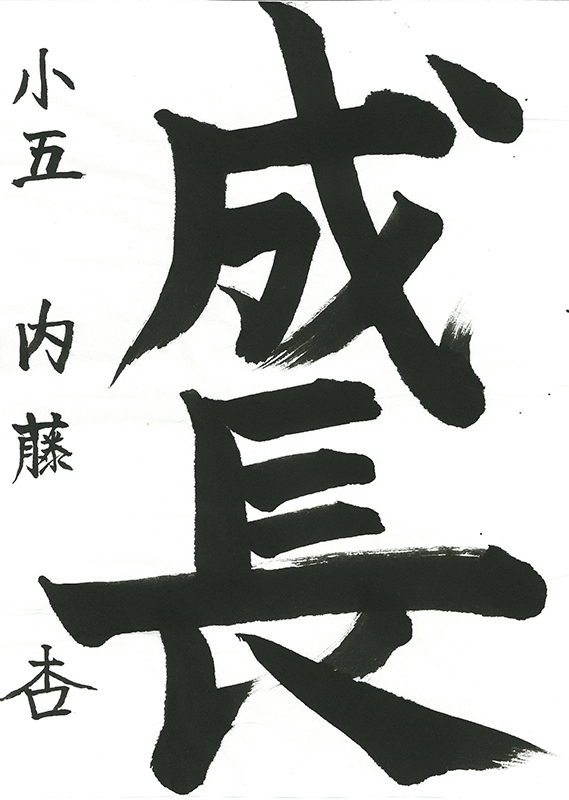 成長
小五 内藤 杏